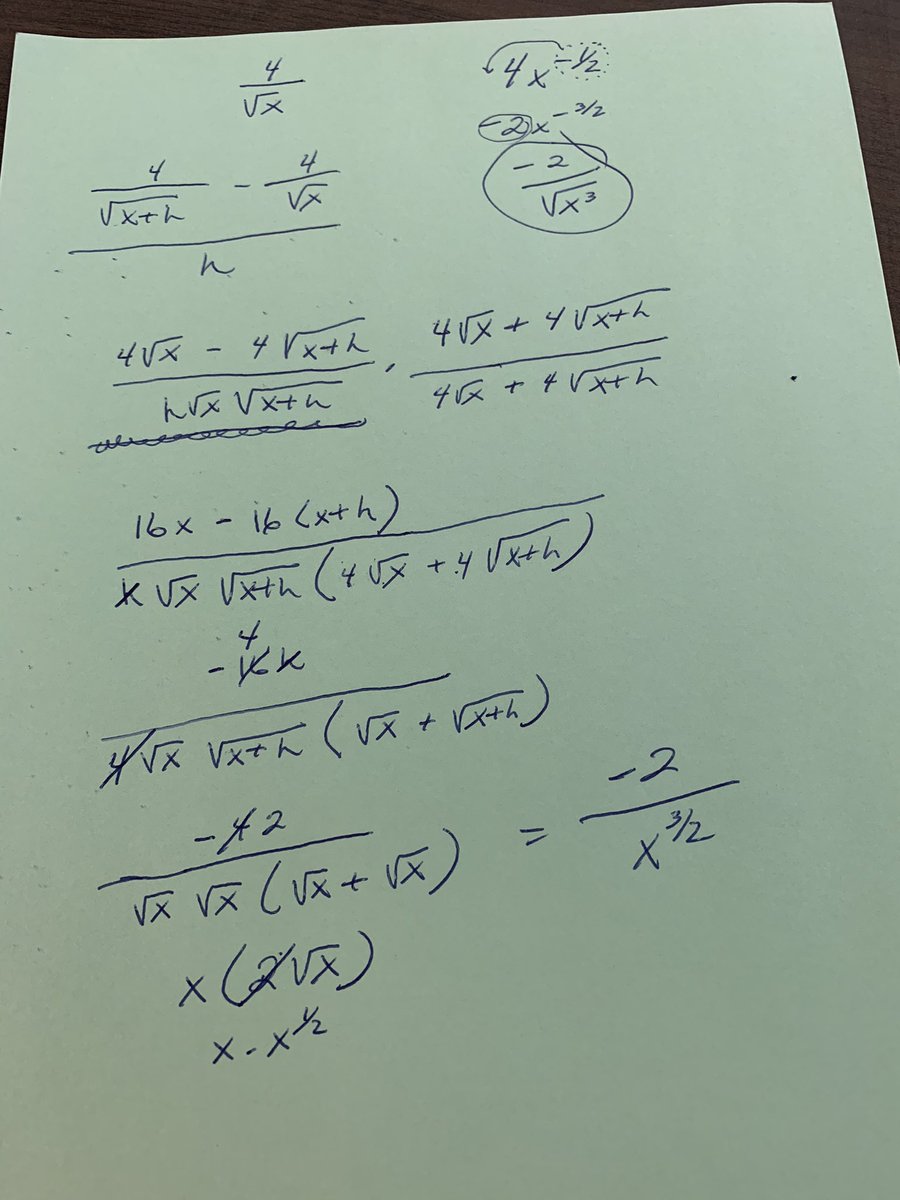 4/√x
4x^(-1/2)
-2x^(-3/2)
-2/√x³
(4/√(x+h) - 4/√x)/h
(4√x - 4√(x+h))/(h√x √(x+h)) · (4√x + 4√(x+h))/(4√x + 4√(x+h))
(16x - 16(x+h))/(h√x √(x+h) (4√x + 4√(x+h)))
4
-16h/(4√x √(x+h) (√x + √(x+h)))
-4 2/(√x √x (√x + √x)) = -2/x^(3/2)
x(2√x)
x - x^(1/2)